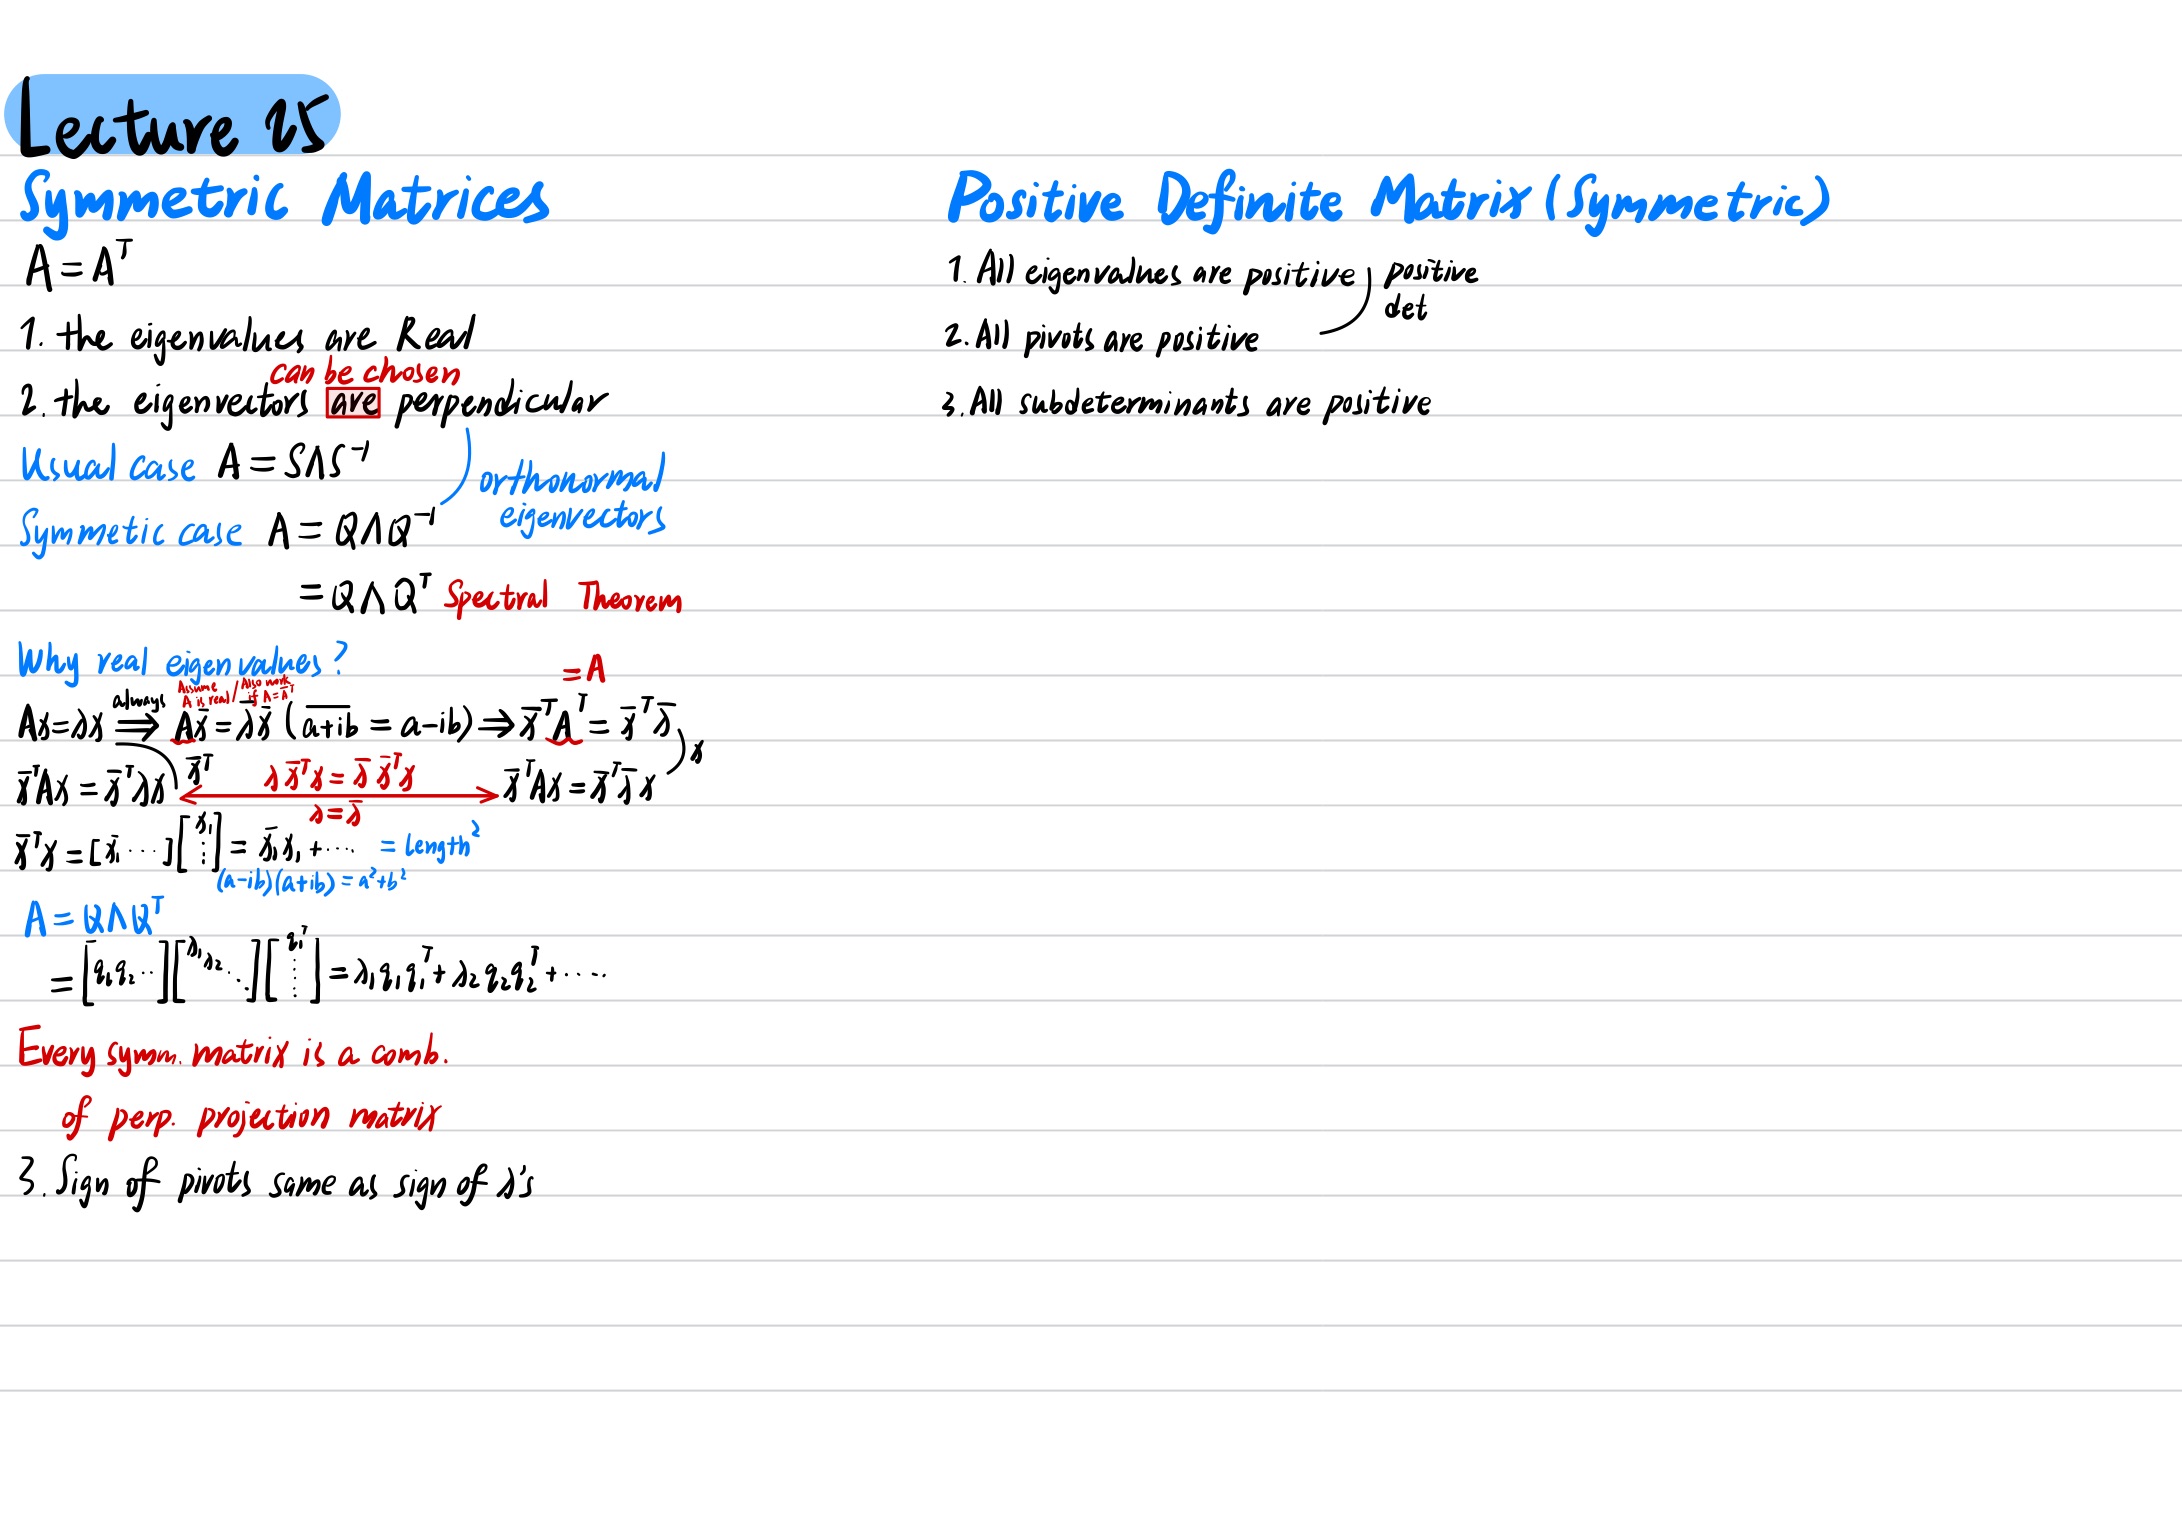 Lecture 25
Symmetric Matrices
A = Aᵀ
1. the eigenvalues are Real
can be chosen
2. the eigenvectors are perpendicular
Usual case A = SΛS⁻¹
orthonormal
eigenvectors
Symmetic case A = QΛQ⁻¹
= QΛQᵀ Spectral Theorem
Why real eigenvalues?
= A
always
Assume A is real / Also work if A = A̅ᵀ
Ax = λx ⇒ Ax̅ = λ̅x̅ (a+ib̅ = a-ib) ⇒ x̅ᵀAᵀ = x̅ᵀλ̅
x
x̅ᵀ
x̅ᵀAx = x̅ᵀλx
λx̅ᵀx = λ̅x̅ᵀx
λ = λ̅
x̅ᵀAx = x̅ᵀλ̅x
x̅ᵀx = [x̅₁ ⋯][x₁ ⋮] = x̅₁x₁ + ⋯ = length²
(a-ib)(a+ib) = a²+b²
A = QΛQᵀ
= [q₁ q₂ ⋯][λ₁ λ₂ ⋱][q₁ᵀ ⋮] = λ₁q₁q₁ᵀ + λ₂q₂q₂ᵀ + ⋯
Every symm. matrix is a comb.
of perp. projection matrix
3. Sign of pivots same as sign of λ's
Positive Definite Matrix (Symmetric)
1. All eigenvalues are positive
positive
det
2. All pivots are positive
3. All subdeterminants are positive